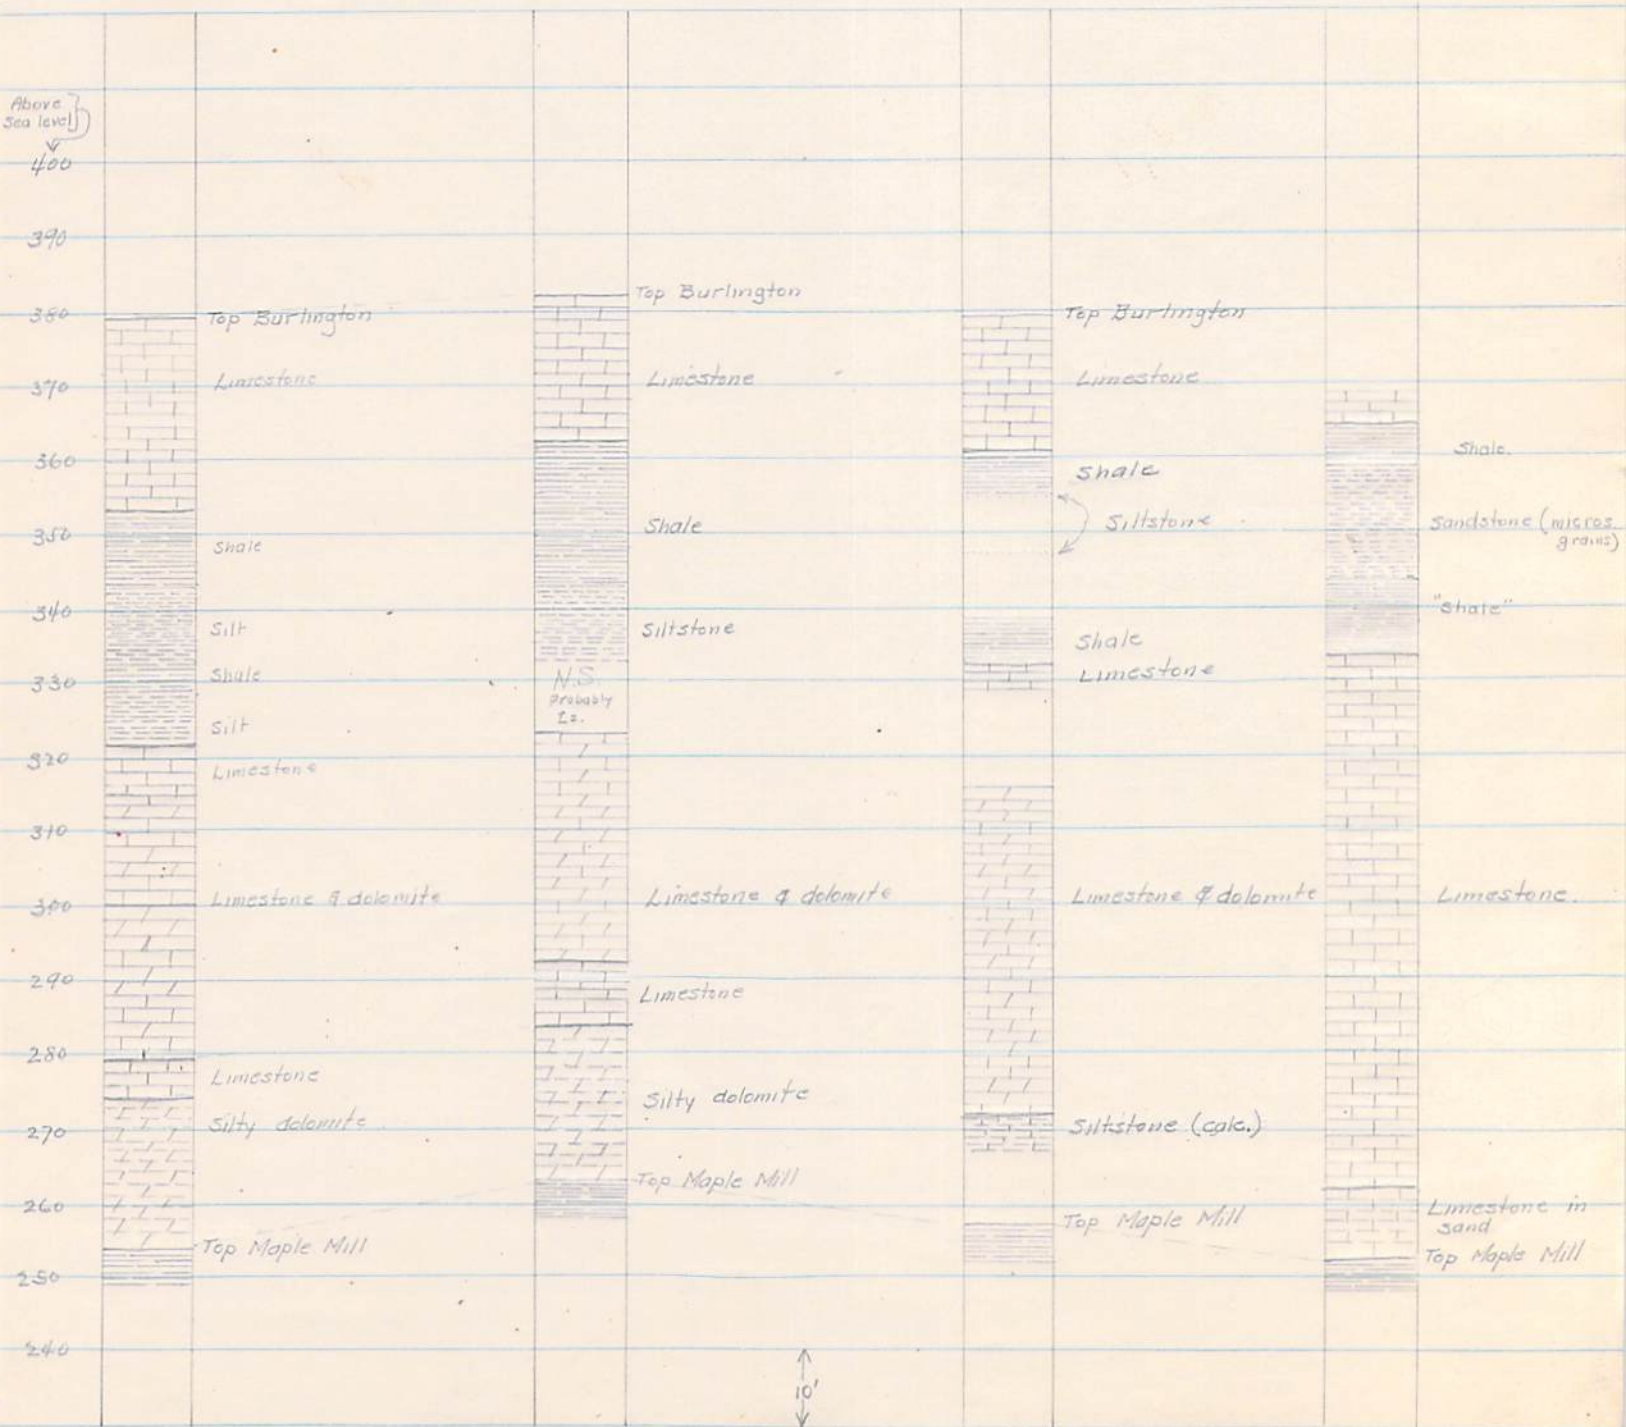 Above
Sea level
400
390
380
370
360
350
340
330
320
310
300
290
280
270
260
250
240
Top Burlington
Limestone
Shale
Silt
Shale
Silt
Limestone
Limestone & dolomite
Limestone
Silty dolomite
Top Maple Mill
Top Burlington
Limestone
Shale
Siltstone
N.S.
Probably
Ls.
Limestone & dolomite
Limestone
Silty dolomite
Top Maple Mill
10'
Top Burlington
Limestone
Shale
Siltstone
Shale
Limestone
Limestone & dolomite
Siltstone (calc.)
Top Maple Mill
Shale.
Sandstone (micros.
grains)
"Shale"
Limestone.
Limestone in
sand
Top Maple Mill